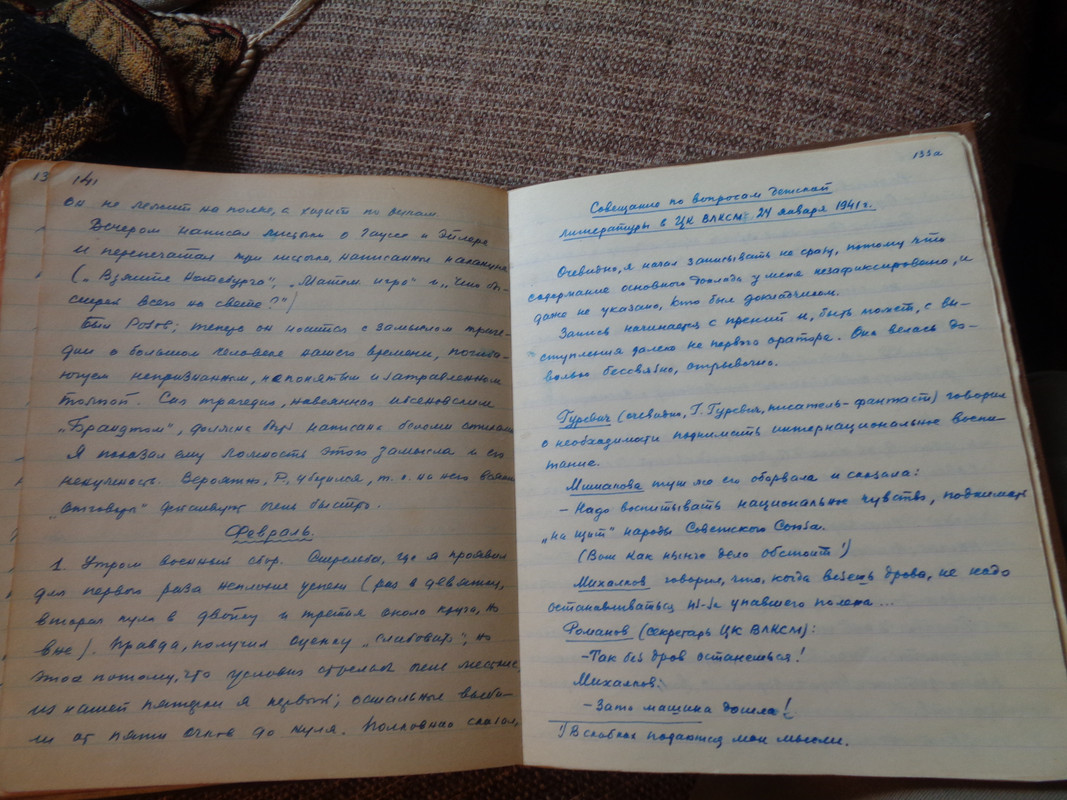 13
141
он не лежит на полке, а ходит по рукам
Вечером написал письмо о Гауссе и Эйлере
и перепечатал три письма, написанные накануне
("Взятие Нотебурга", "Матем. игра" и "Что бы-
стрей всего на свете?")
Был Розов; теперь он носится с замыслом траге-
дии о большом человеке нашего времени, погиба-
ющем непризнанном, непонятым и затравленном
толпой. Сия трагедия, навеянная ибсеновским
"Брандтом", должна быть написана белыми стихами
Я показал ему ложность этого замысла и его
ненужность. Вероятно, Р. убедился, т. к. на него всякие
"отговоры" действуют очень быстро.
Февраль.
1. Утром военный сбор. Стрельба, где я проявил
для первого раза неплохие успехи (раз в девятку,
вторая пуля в двойку и третья около круга, но
вне). Правда, получил оценку "слабовато", но
это потому, что условия стрельбы очень жесткие
из нашей пятерки я первый; остальные выби-
ли от пяти очков до нуля. Полковник сказал,
133а
Совещание по вопросам детской
литературы в ЦК ВЛКСМ 24 января 1941 г.
Очевидно, я начал записывать не сразу, потому что
содержание основного доклада у меня незафиксировано, и
даже не указано, кто был докладчиком.
Запись начинается с прений и, быть может, с вы-
ступления далеко не первого оратора. Она велась до-
вольно бессвязно, отрывочно.
Гуревич (очевидно, Г. Гуревич, писатель-фантаст) говорил
о необходимости поднимать интернациональное воспи-
тание.
Мишакова тут же его оборвала и сказала:
- Надо воспитывать национальное чувство, поднимать
"на щит" народы Советского Союза.
(Вот как ныне дело обстоит!¹)
Михалков говорил, что, когда везешь дрова, не надо
останавливаться из-за упавшего полена...
Романов (секретарь ЦК ВЛКСМ):
- Так без дров останешься!
Михалков:
- Зато машина дошла!
¹) В скобках подаются мои мысли.